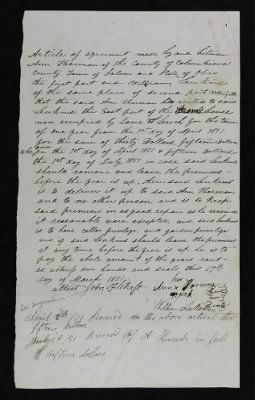 Article of agreement made by and between
Ann Harmon of the county of Columbiana
county Town of Salem and State of Ohio
the first part and William
of the same place of second part
that the said Ann Harmon has rented to said
the East part of the house
now occupied by for the term
of one year from the 1st day of April 1851
for the sum of thirty Dollars fifteen dollars
on the 1st day of April 1851 & fifteen dollars
the 1st day of July 1851 in case said
should remove and leave the premises
before the year is up, then said
is to deliver it up to said Ann Harmon
and to no other person, and is to keep
said premises in as good repair as he
it reasonable wear excepted and said
is to have cellar privilege and garden privilege
and if said should leave the premises
at any time before the year is up he is to
pay the whole amount of the years rent
as witness our hands and seals this 17th
day of March 1851
attest John her
Ann Harmon
mark
April 1851 Received on the above article the
fifteen dollars
Received of A in full
fifteen dollars